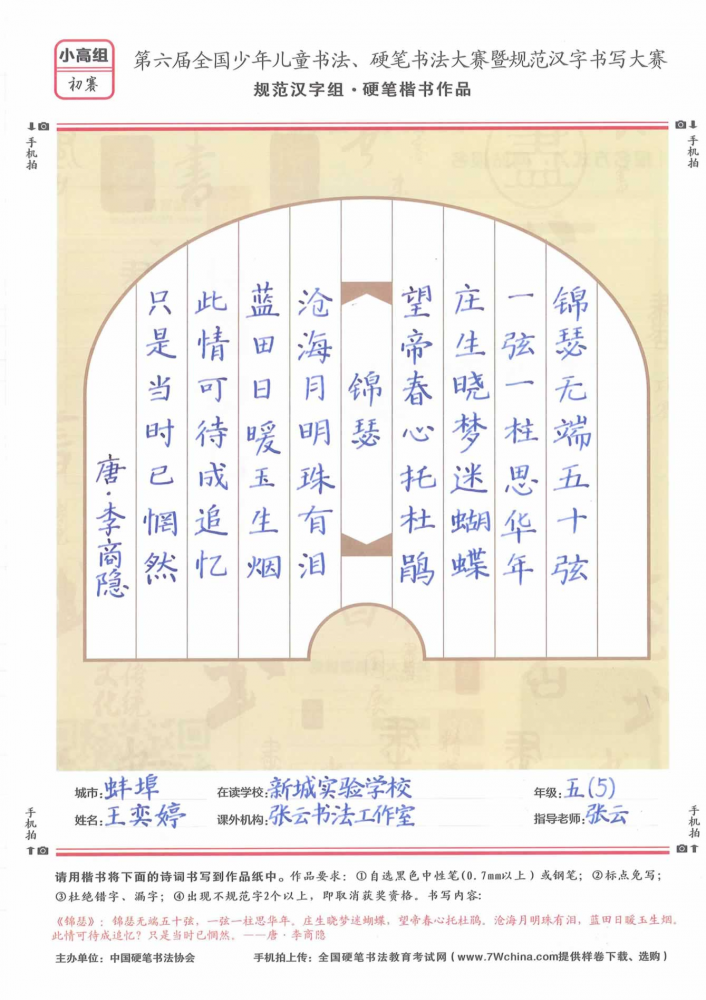 小高组
初赛
第六届全国少年儿童书法、硬笔书法大赛暨规范汉字书写大赛
规范汉字组·硬笔楷书作品
手机拍
手机拍
锦瑟无端五十弦
一弦一柱思华年
庄生晓梦迷蝴蝶
望帝春心托杜鹃
锦瑟
沧海月明珠有泪
蓝田日暖玉生烟
此情可待成追忆
只是当时已惘然
唐·李商隐
城市:蚌埠 在读学校:新城实验学校 年级:五(5)
姓名:王奕婷 课外机构:张云书法工作室 指导老师:张云
手机拍
手机拍
请用楷书将下面的诗词书写到作品纸中。作品要求：①自选黑色中性笔(0.7mm以上）或钢笔；②标点免写；
③杜绝错字、漏字；④出现不规范字2个以上，即取消获奖资格。书写内容:
《锦瑟》：锦瑟无端五十弦，一弦一柱思华年。庄生晓梦迷蝴蝶，望帝春心托杜鹃。沧海月明珠有泪，蓝田日暖玉生烟。
此情可待成追忆？只是当时已惘然。——唐·李商隐
主办单位：中国硬笔书法协会 手机拍上传：全国硬笔书法教育考试网（www.7Wchina.com提供样卷下载、选购）